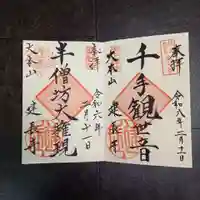 奉拝
千手観世音
大本山
建長寺
令和六年二月十一日
奉拝
半僧坊大権現
大本山
建長寺
令和六年二月十一日